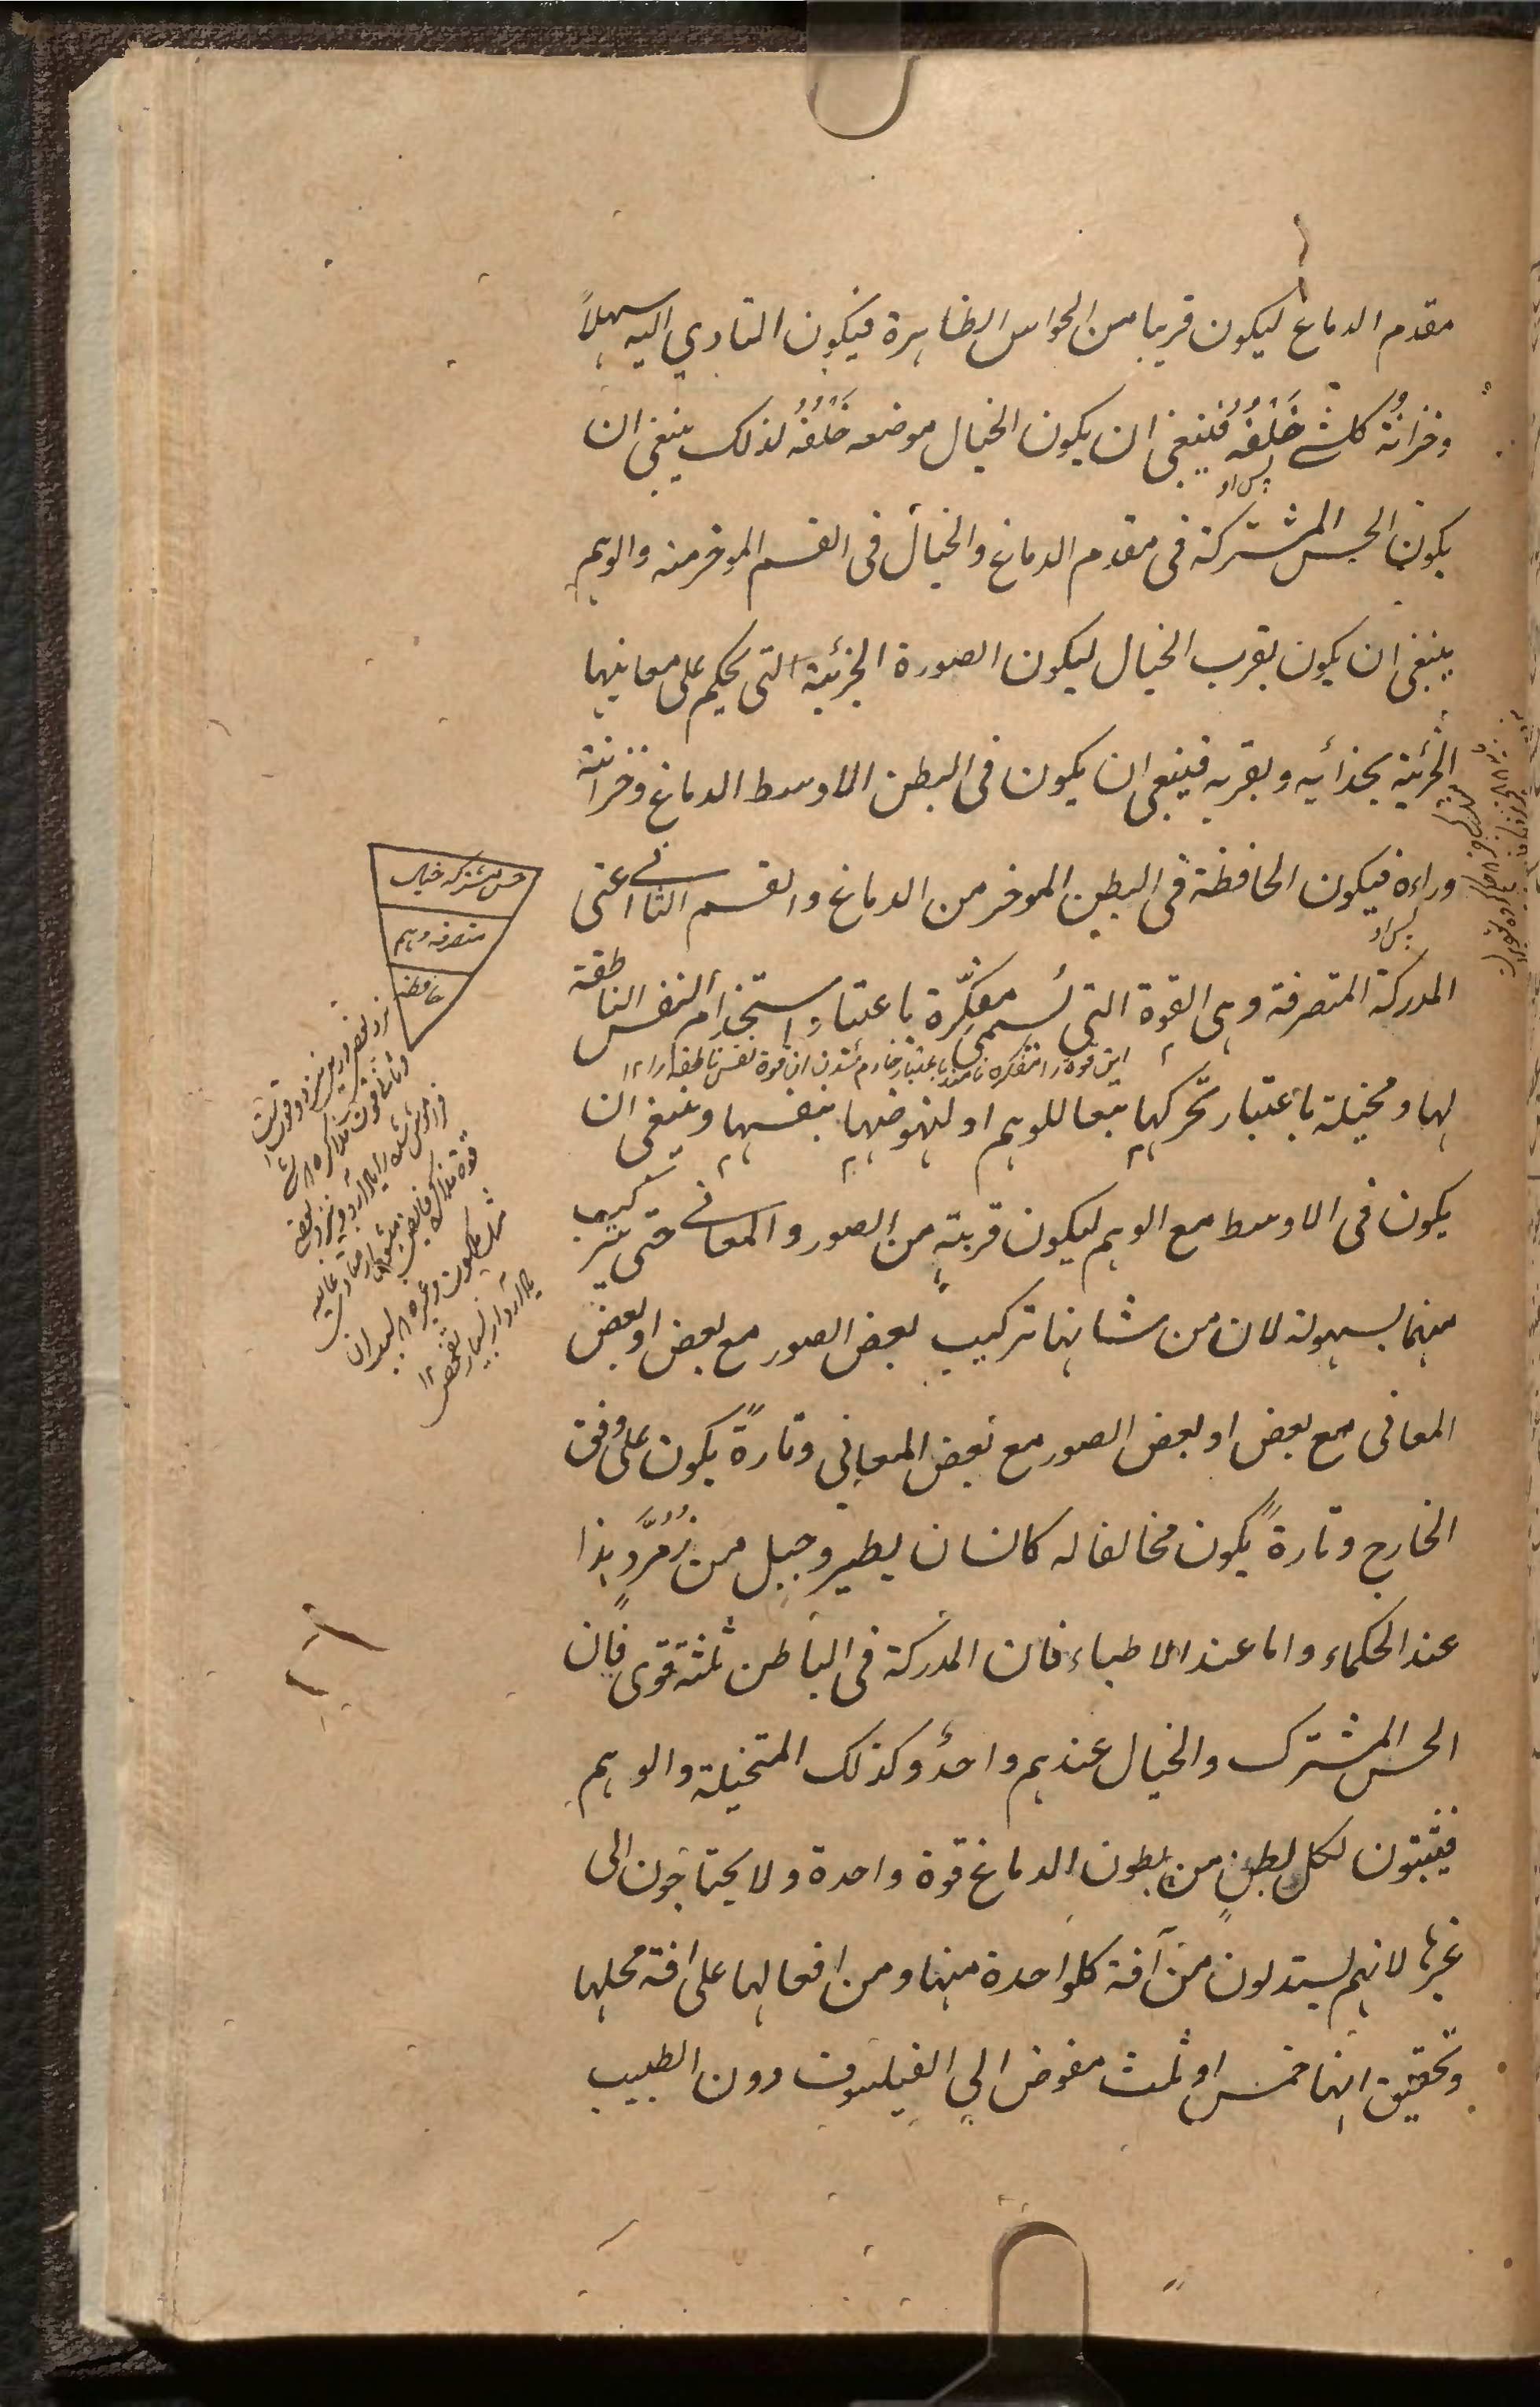 مقدم الدماغ ليكون قريبا من الحواس الظاهرة فيكون التادي اليه سهلاً
وخزانة كلشئ خَلْفَهُ فينبغي ان يكون الخيال موضعه خَلْفَهُ لذلك ينبغي ان
پس او
يكون الحس المشتركة في مقدم الدماغ والخيال في القسم الموخر منه والوهم
ينبغي ان يكون بقرب الخيال ليكون الصورة الجزئية التي يحكم على معانيها
الجزئية بحذائه وبقربه فينبغي ان يكون في البطن الاوسط الدماغ وخزانته
وراءه فيكون الحافظة في البطن الموخر من الدماغ والقسم الثاني اعني
پس او
المدركة المتصرفة وهي القوة التي تسمى مفكّرة باعتبار استخدام النفس الناطقة
اين قوة را متفكره نامند باعتبار خادم شدن ان قوة نفس ناطقه را ١٢
لها ومخيلة باعتبار تحركها تبعا للوهم او لنهوضها بنفسها وينبغي ان
يكون في الاوسط مع الوهم ليكون قريبة من الصور والمعاني حتى تتركب
منهما بسهولة لان من شانها تركيب بعض الصور مع بعض او بعض
المعاني مع بعض او بعض الصور مع بعض المعاني وتارةً يكون على وفق
الخارج وتارةً يكون مخالفا له كانسان يطير وجبل من زُمُرَّدٍ هذا
عند الحكماء واما عند الاطباء فان المدركة في الباطن ثلثة قوى فان
الحس المشترك والخيال عندهم واحدٌ وكذلك المتخيلة والوهم
فيثبتون لكل بطنٍ من بطون الدماغ قوة واحدة ولا يحتاجون الى
غيرها لانهم يستدلون من آفة كلواحدة منها ومن افعالها على افة محلها
وتحقيق انها خمس او ثلث مفوض الى الفيلسوف دون الطبيب
حس مشتركه خيال
متصرفه وهم
حافظه